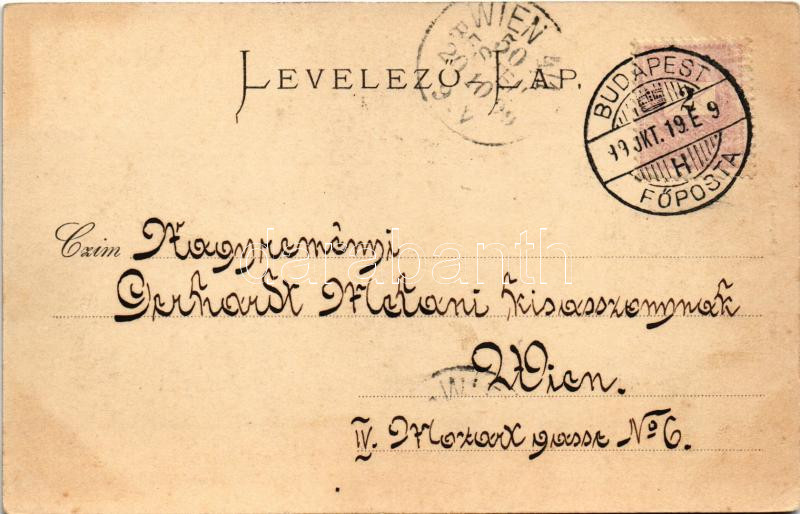 WIEN
LEVELEZŐ LAP.
BUDAPEST
99 OKT. 19. E 9
H
FŐPOSTA
Czim Nagyreményi
Gerhardt Melani kisasszonynak
Wien.
IV. Mozart gasse No 6.
darabanth